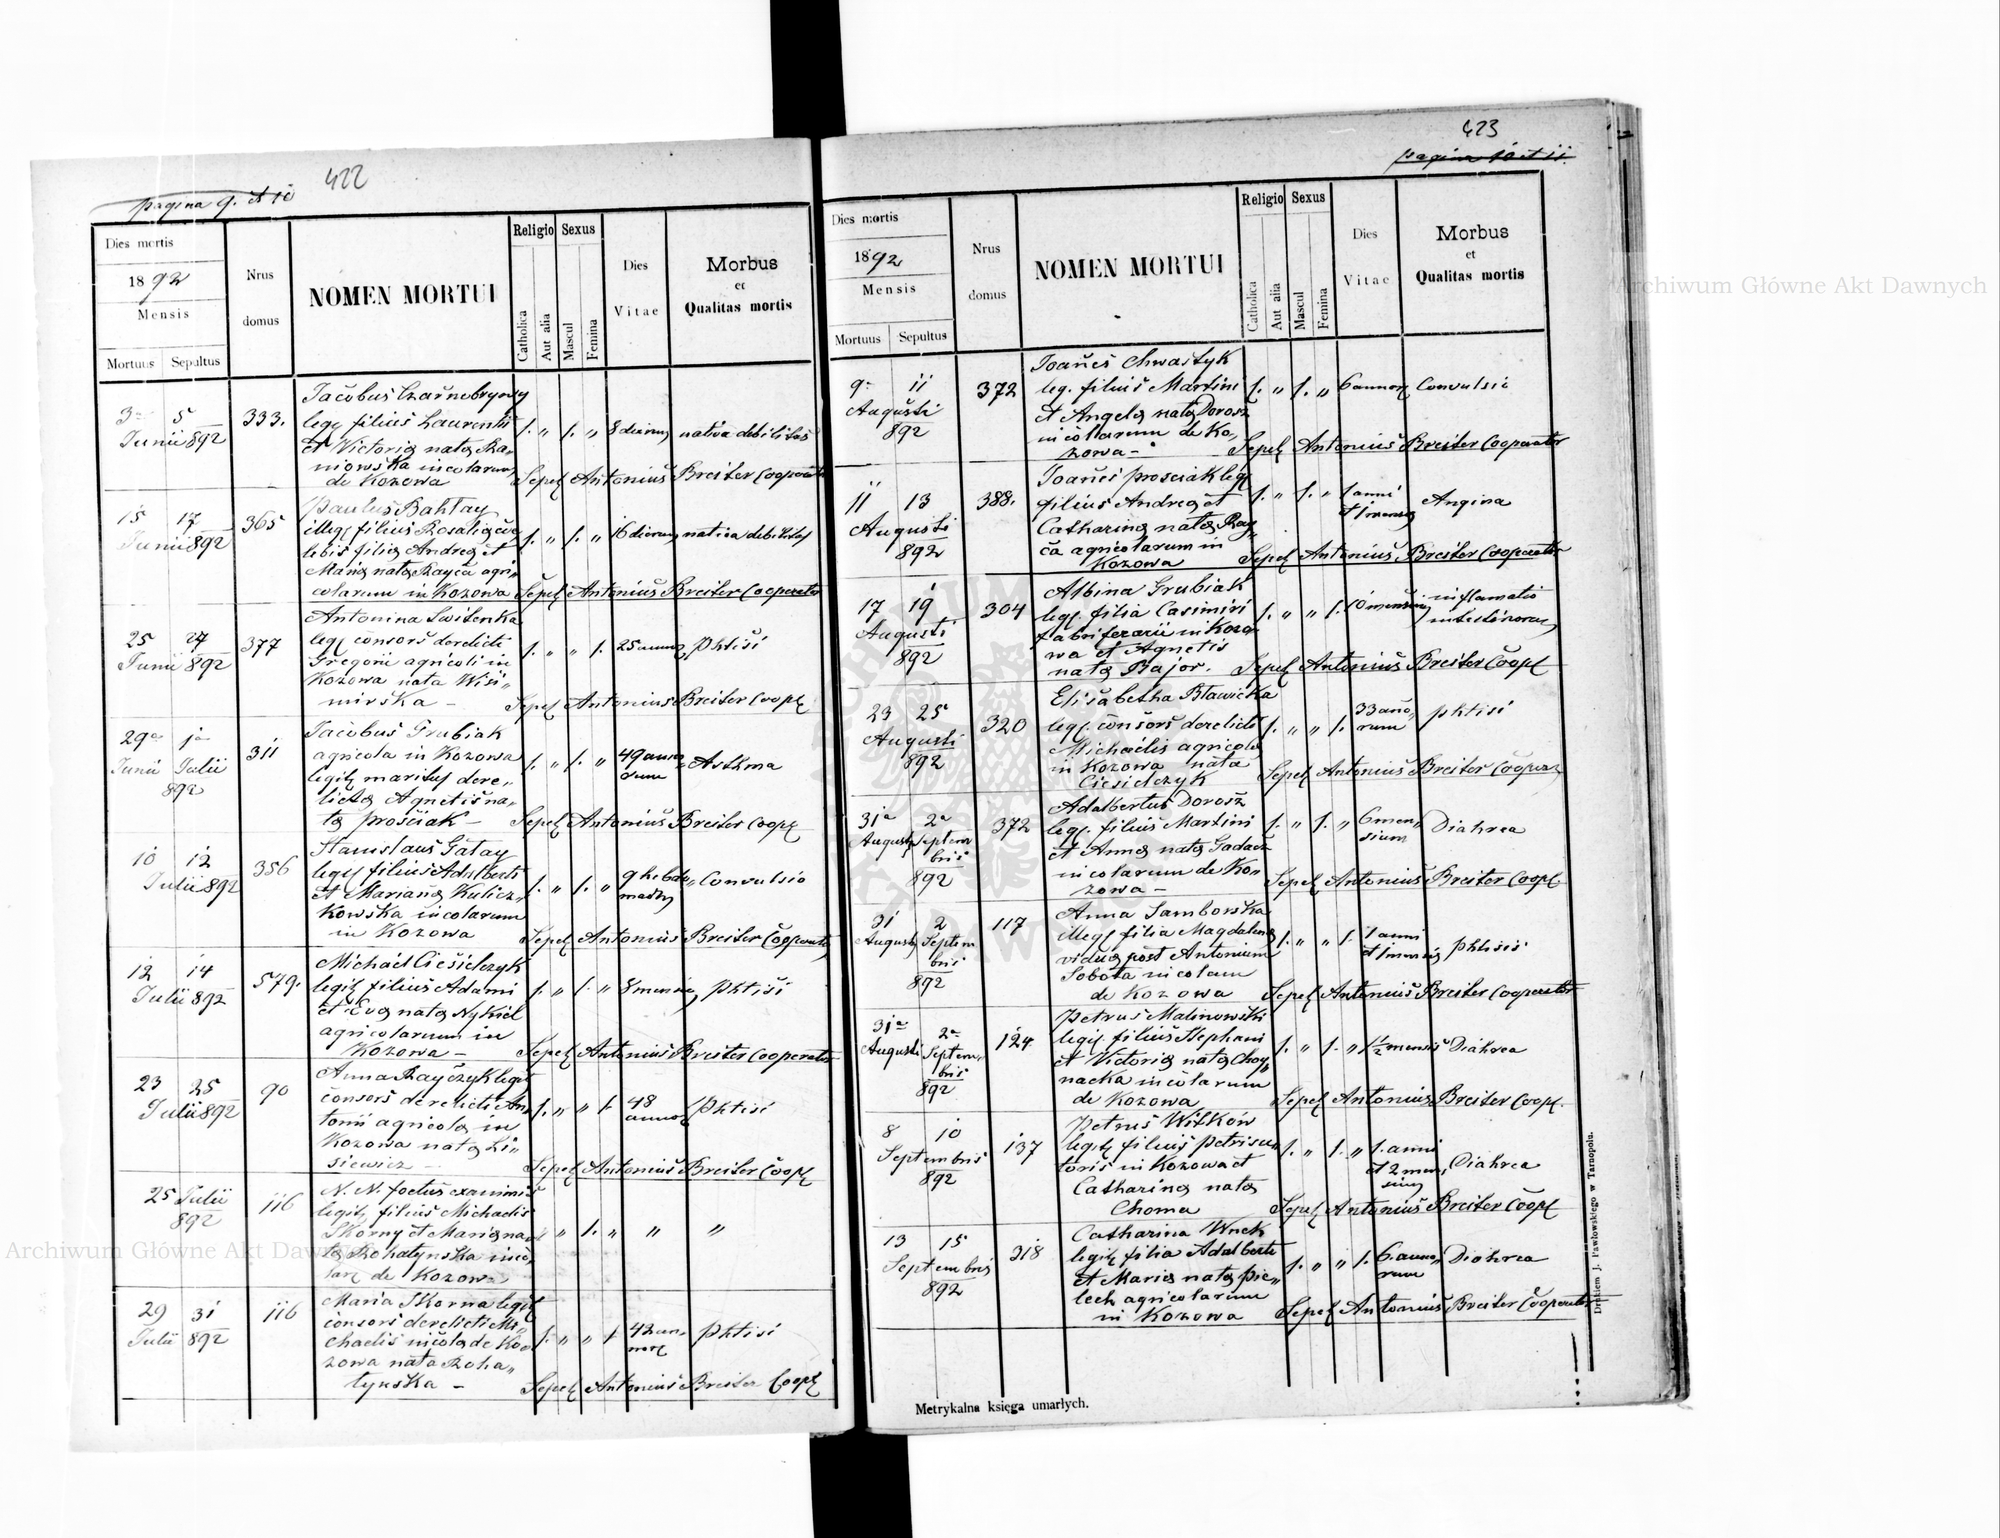 422
pagina 9. et 10
Dies mortis
1892
Mensis
Mortuus Sepultus
Nrus domus
NOMEN MORTUI
Religio
Catholica
Aut alia
Sexus
Mascul
Femina
Dies Vitae
Morbus
et
Qualitas mortis
3 5
Junii 892
333.
Jacobus
leg. filius Laurentii
et Victoria nata
incolarum
de Kozowa
1. " 1. "
8 dierum
nativa debilitas
Sepel Antonius Breiter Cooperator
15 17
Junii 892
365
Paulus Bahtay
illeg. filius Rosalia
filia Andrea et
Maria nata Rayca agri-
colarum in Kozowa
1. " 1. "
16 dierum
nativa debilitas
Sepel Antonius Breiter Cooperator
25 27
Junii 892
377
Antonina Switenka
leg. consors derelicti
Gregorii agricoli in
Kozowa nata Wisi-
mirska -
1. " " 1.
25 annor
phtisi
Sepel Antonius Breiter Coop
29a 1a
Junii Julii
892
311
Jacobus Grubiak
agricola in Kozowa
legit maritus dere-
licta Agnetis na-
ta Prosciak -
1. " 1. "
49 anno-
rum
Asthma
Sepel Antonius Breiter Coop
10 12
Julii 892
356
Stanislaus Gatay
legit filius Adalberti
et Marianna Kulicz-
kowska incolarum
in Kozowa
1. " 1. "
9 hebdo-
madum
Convulsio
Sepel Antonius Breiter Cooperator
12 14
Julii 892
579.
Michael Ciesielczyk
legit filius Adami
et Eva nata Nykiel
agricolarum in
Kozowa -
1. " 1. "
8 mensium
phtisi
Sepel Antonius Breiter Cooperator
23 25
Julii 892
90
Anna Rayczyk legit
consors derelicti An-
tonii agricola in
Kozowa nata Li-
siewicz -
1. " " 1.
48
annor
phtisi
Sepel Antonius Breiter Coop
25 Julii
892
116
N. N. foetus exanimis
legit filius Michaelis
Skorny et Maria na-
ta Rohatynska inco-
lar de Kozowa
" 1. " " "
29 31
Julii 892
116
Maria Skorna legit
consors derelicti Mi-
chaelis incola de Ko-
zowa nata Roha-
tynska -
1. " " 1.
42 an-
nor
phtisi
Sepel Antonius Breiter Coop
423
pagina 10 et 11
Dies mortis
1892
Mensis
Mortuus Sepultus
Nrus domus
NOMEN MORTUI
Religio
Catholica
Aut alia
Sexus
Mascul
Femina
Dies Vitae
Morbus
et
Qualitas mortis
9 11
Augusti
892
372
Joannes Chwastyk
leg. filius Martini
et Angela nata Dorosz
incolarum de Ko-
zowa -
1. " 1. "
6 annor
Convulsio
Sepel Antonius Breiter Cooperator
11 13
Augusti
892
388.
Joannes Prosciak leg
filius Andrea et
Catharina nata Ray
ca agricolarum in
Kozowa
1. " 1. "
1 anni
et 1 mensis
Angina
Sepel Antonius Breiter Cooperator
17 19
Augusti
892
304
Albina Grubiak
leg. filia Casimiri
fabri ferrarii in Kozo-
wa et Agnetis
nata Bajor.
1. " " 1.
10 mensium
inflamatio
intestinorum
Sepel Antonius Breiter Coop
23 25
Augusti
892
320
Elisabetha Bławicka
leg. consors derelicti
Michaelis agricola
in Kozowa nata
Ciesielczyk
1. " " 1.
33 anno-
rum
phtisi
Sepel Antonius Breiter Cooperat
31a 2a
Augusti Septem
bris
892
372
Adalbertus Dorosz
leg. filius Martini
et Anna nata Gadacz
incolarum de Ko-
zowa -
1. " 1. "
6 men-
sium
Diahrea
Sepel Antonius Breiter Coop
31 2
Augusti Septem
bris
892
117
Anna Samborska
illeg. filia Magdalena
vidua post Antonium
Sobota incolam
de Kozowa
1. " " 1.
1 anni
et 1 mensis
phtisis
Sepel Antonius Breiter Cooperator
31a 2a
Augusti Septem-
bris
892
124
Petrus Malinowski
legit. filius Stephani
et Victoria nata Choy
nacka incolarum
de Kozowa
1. " 1. "
1 1/2 mensis
Diahrea
Sepel Antonius Breiter Coop.
8 10
Septembris
892
137
Petrus Witkow
legit filius Petri su-
toris in Kozowa et
Catharina nata
Choma
1. " 1. "
1. anni
et 2 men-
sium
Diahrea
Sepel Antonius Breiter Coop
13 15
Septembris
892
318
Catharina Wnek
legit filia Adalberti
et Maria nata Pie-
lech agricolarum
in Kozowa
1. " " 1.
6. anno-
rum
Diahrea
Sepel Antonius Breiter Cooperator
Metrykalna księga umarłych.
Drukiem J. Pawłowskiego w Tarnopolu.
Archiwum Główne Akt Dawnych
Archiwum Główne Akt Dawnych